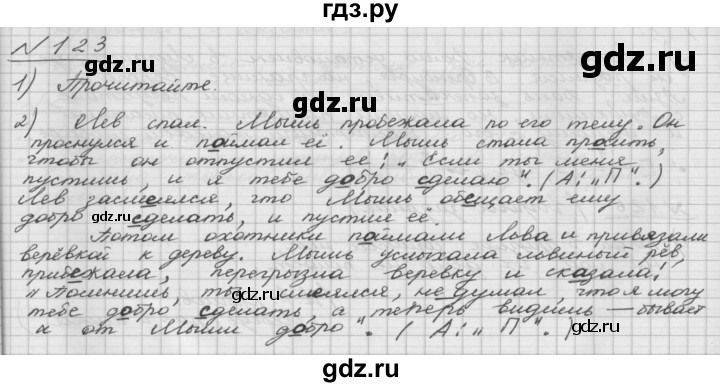 гдз.ру
№ 123
1) Прочитайте.
2) Лев спал. Мышь пробежала по его телу. Он
проснулся и поймал её. Мышь стала просить,
чтобы он отпустил её: „Если ты меня
пустишь, и я тебе добро сделаю“. (А: „П“.)
Лев засмеялся, что Мышь обещает ему
добро сделать, и пустил её.
Потом охотники поймали Льва и привязали
верёвкой к дереву. Мышь услыхала львиный рёв,
прибежала, перегрызла веревку и сказала:
„Помнишь, ты смеялся, не думал, что я могу
тебе добро сделать, а теперь видишь – бывает
и от Мыши добро“. (А: „П“.)
gdz.ru
gdz.ru
gdz.ru
gdz.ru
gdz.ru
gdz.ru
gdz.ru
gdz.ru
gdz.ru
gdz.ru